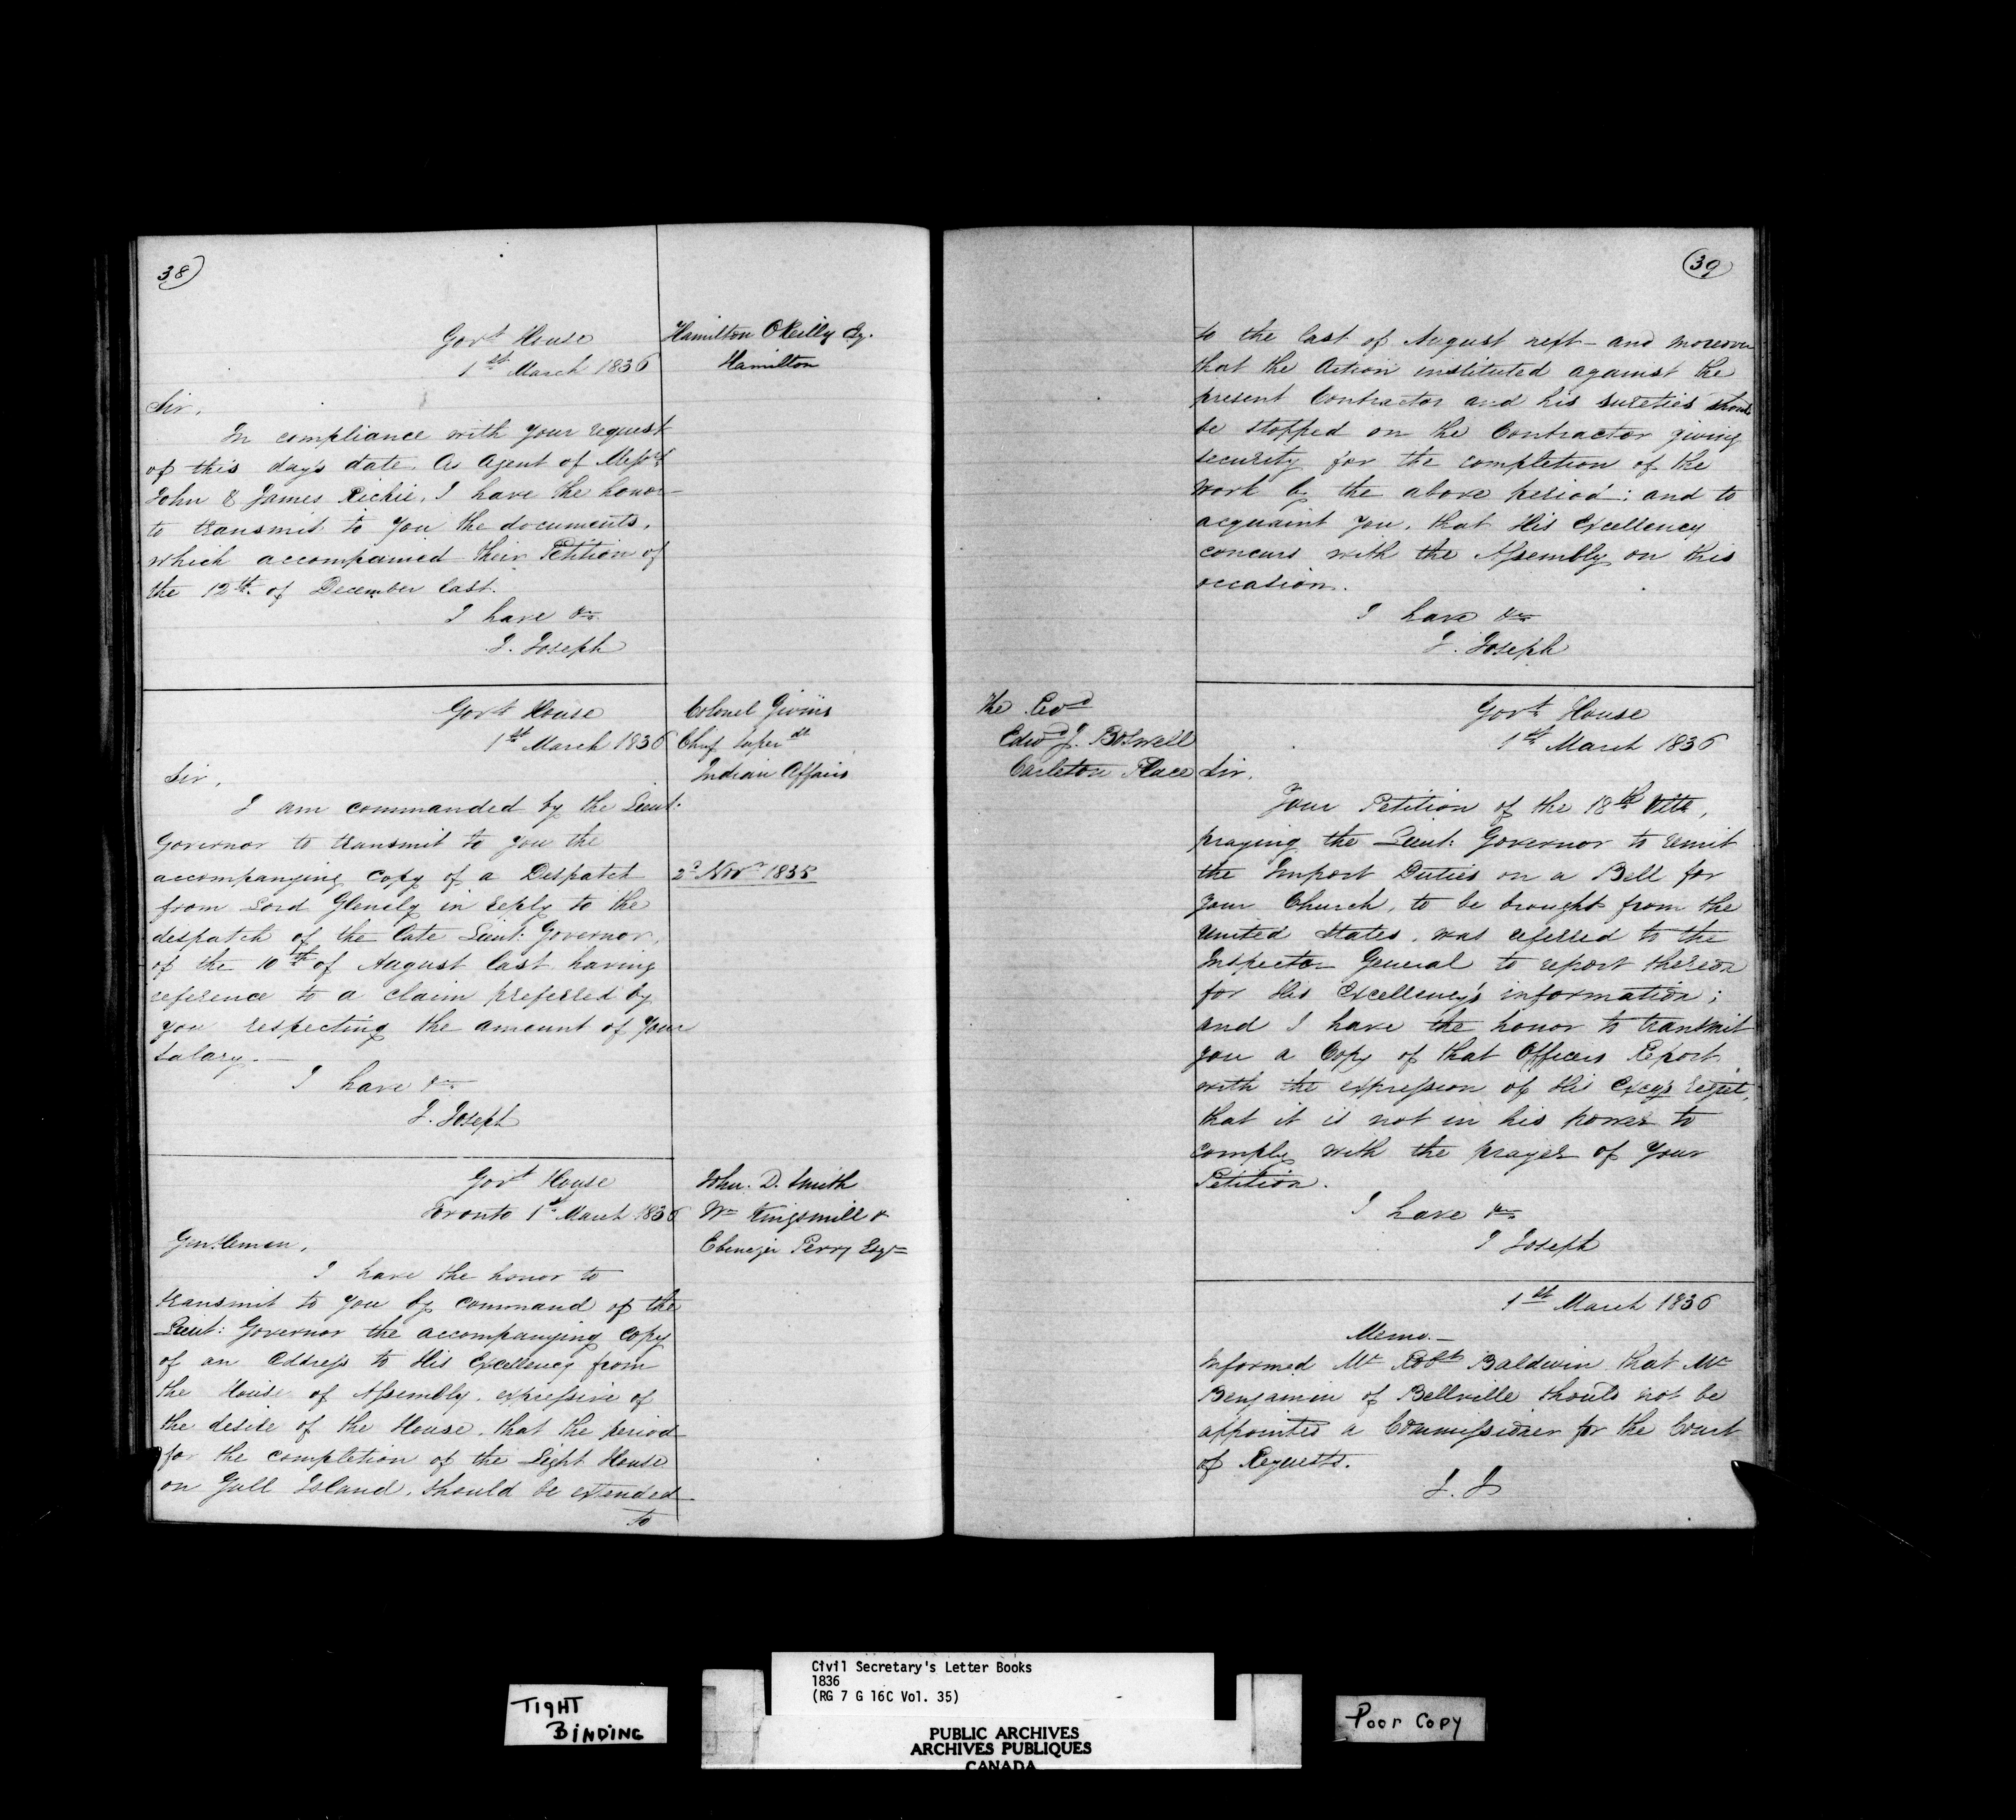 38
Govt. House
1st March 1836
Hamilton OReilly Esq.
Hamilton
Sir,
In compliance with your request
of this day's date, as Agent of Messrs
John & James Richie, I have the honor
to transmit to you the documents,
which accompanied their Petition of
the 12th. of December last.
I have &c
J. Joseph
Govt. House
1st. March 1836
Colonel Givins
Chief Superdt
Indian Affairs
Sir,
I am commanded by the Lieut:
Governor to transmit to you the
accompanying Copy of a Despatch
2d Novr 1835
from Lord Glenelg in reply to the
despatch of the late Lieut: Governor,
of the 10th of August last having
reference to a claim preferred by
you respecting the amount of your
salary.—
I have &c
J. Joseph
Govt House
Toronto 1st. March 1836
John. D. Smith
Wm Kingsmill &
Ebenezer Perry Esqrs
Gentlemen,
I have the honor to
transmit to you by command of the
Lieut: Governor the accompanying Copy
of an Address to His Excellency from
the House of Assembly, expressive of
the desire of the House, that the period
for the completion of the Light House
on Gull Island, should be extended
to
39
to the last of August next— and moreover
that the Action instituted against the
present Contractor and his sureties should
be stopped on the Contractor giving
security for the completion of the
work by the above period; and to
acquaint you, that His Excellency
concurs with the Assembly on this
occasion.
I have &c
J. Joseph
The Revd
Edwd J. Boswell
Carleton Place
Govt. House
1st March 1836
Sir,
Your Petition of the 18th Ulto,
praying the Lieut: Governor to remit
the Import Duties on a Bell for
your Church, to be brought from the
United States, was referred to the
Inspector General to report thereon
for His Excellency's information;
and I have the honor to transmit
you a Copy of that Officers Report,
with the expression of His Excy's regret,
that it is not in his power to
comply with the prayer of your
Petition.
I have &c
J Joseph
1st March 1836
Memo.—
Informed Mr Robt Baldwin that Mr
Benjamin of Bellville should not be
appointed a Commissioner for the Court
of Requests.
J. J
TIGHT
BINDING
Civil Secretary's Letter Books
1836
(RG 7 G 16C Vol. 35)
PUBLIC ARCHIVES
ARCHIVES PUBLIQUES
CANADA
Poor Copy